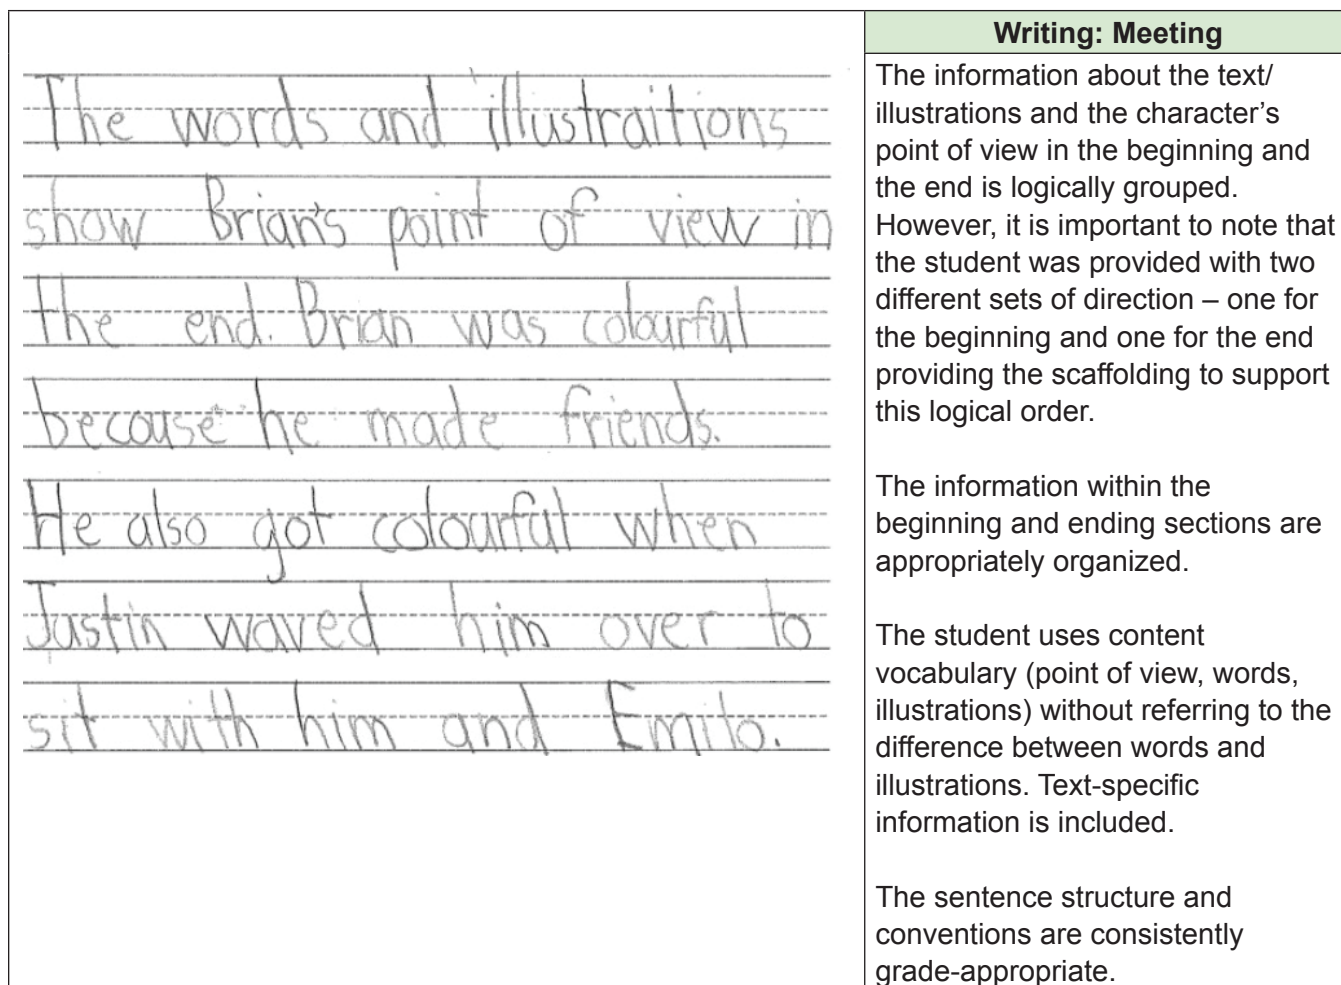 The words and illustraitions
show Brian's point of view in
the end. Brian was colourful
becouse he made friends.
He also got colourful when
Justin waved him over to
sit with him and Emilo.
Writing: Meeting
The information about the text/
illustrations and the character’s
point of view in the beginning and
the end is logically grouped.
However, it is important to note that
the student was provided with two
different sets of direction – one for
the beginning and one for the end
providing the scaffolding to support
this logical order.
The information within the
beginning and ending sections are
appropriately organized.
The student uses content
vocabulary (point of view, words,
illustrations) without referring to the
difference between words and
illustrations. Text-specific
information is included.
The sentence structure and
conventions are consistently
grade-appropriate.